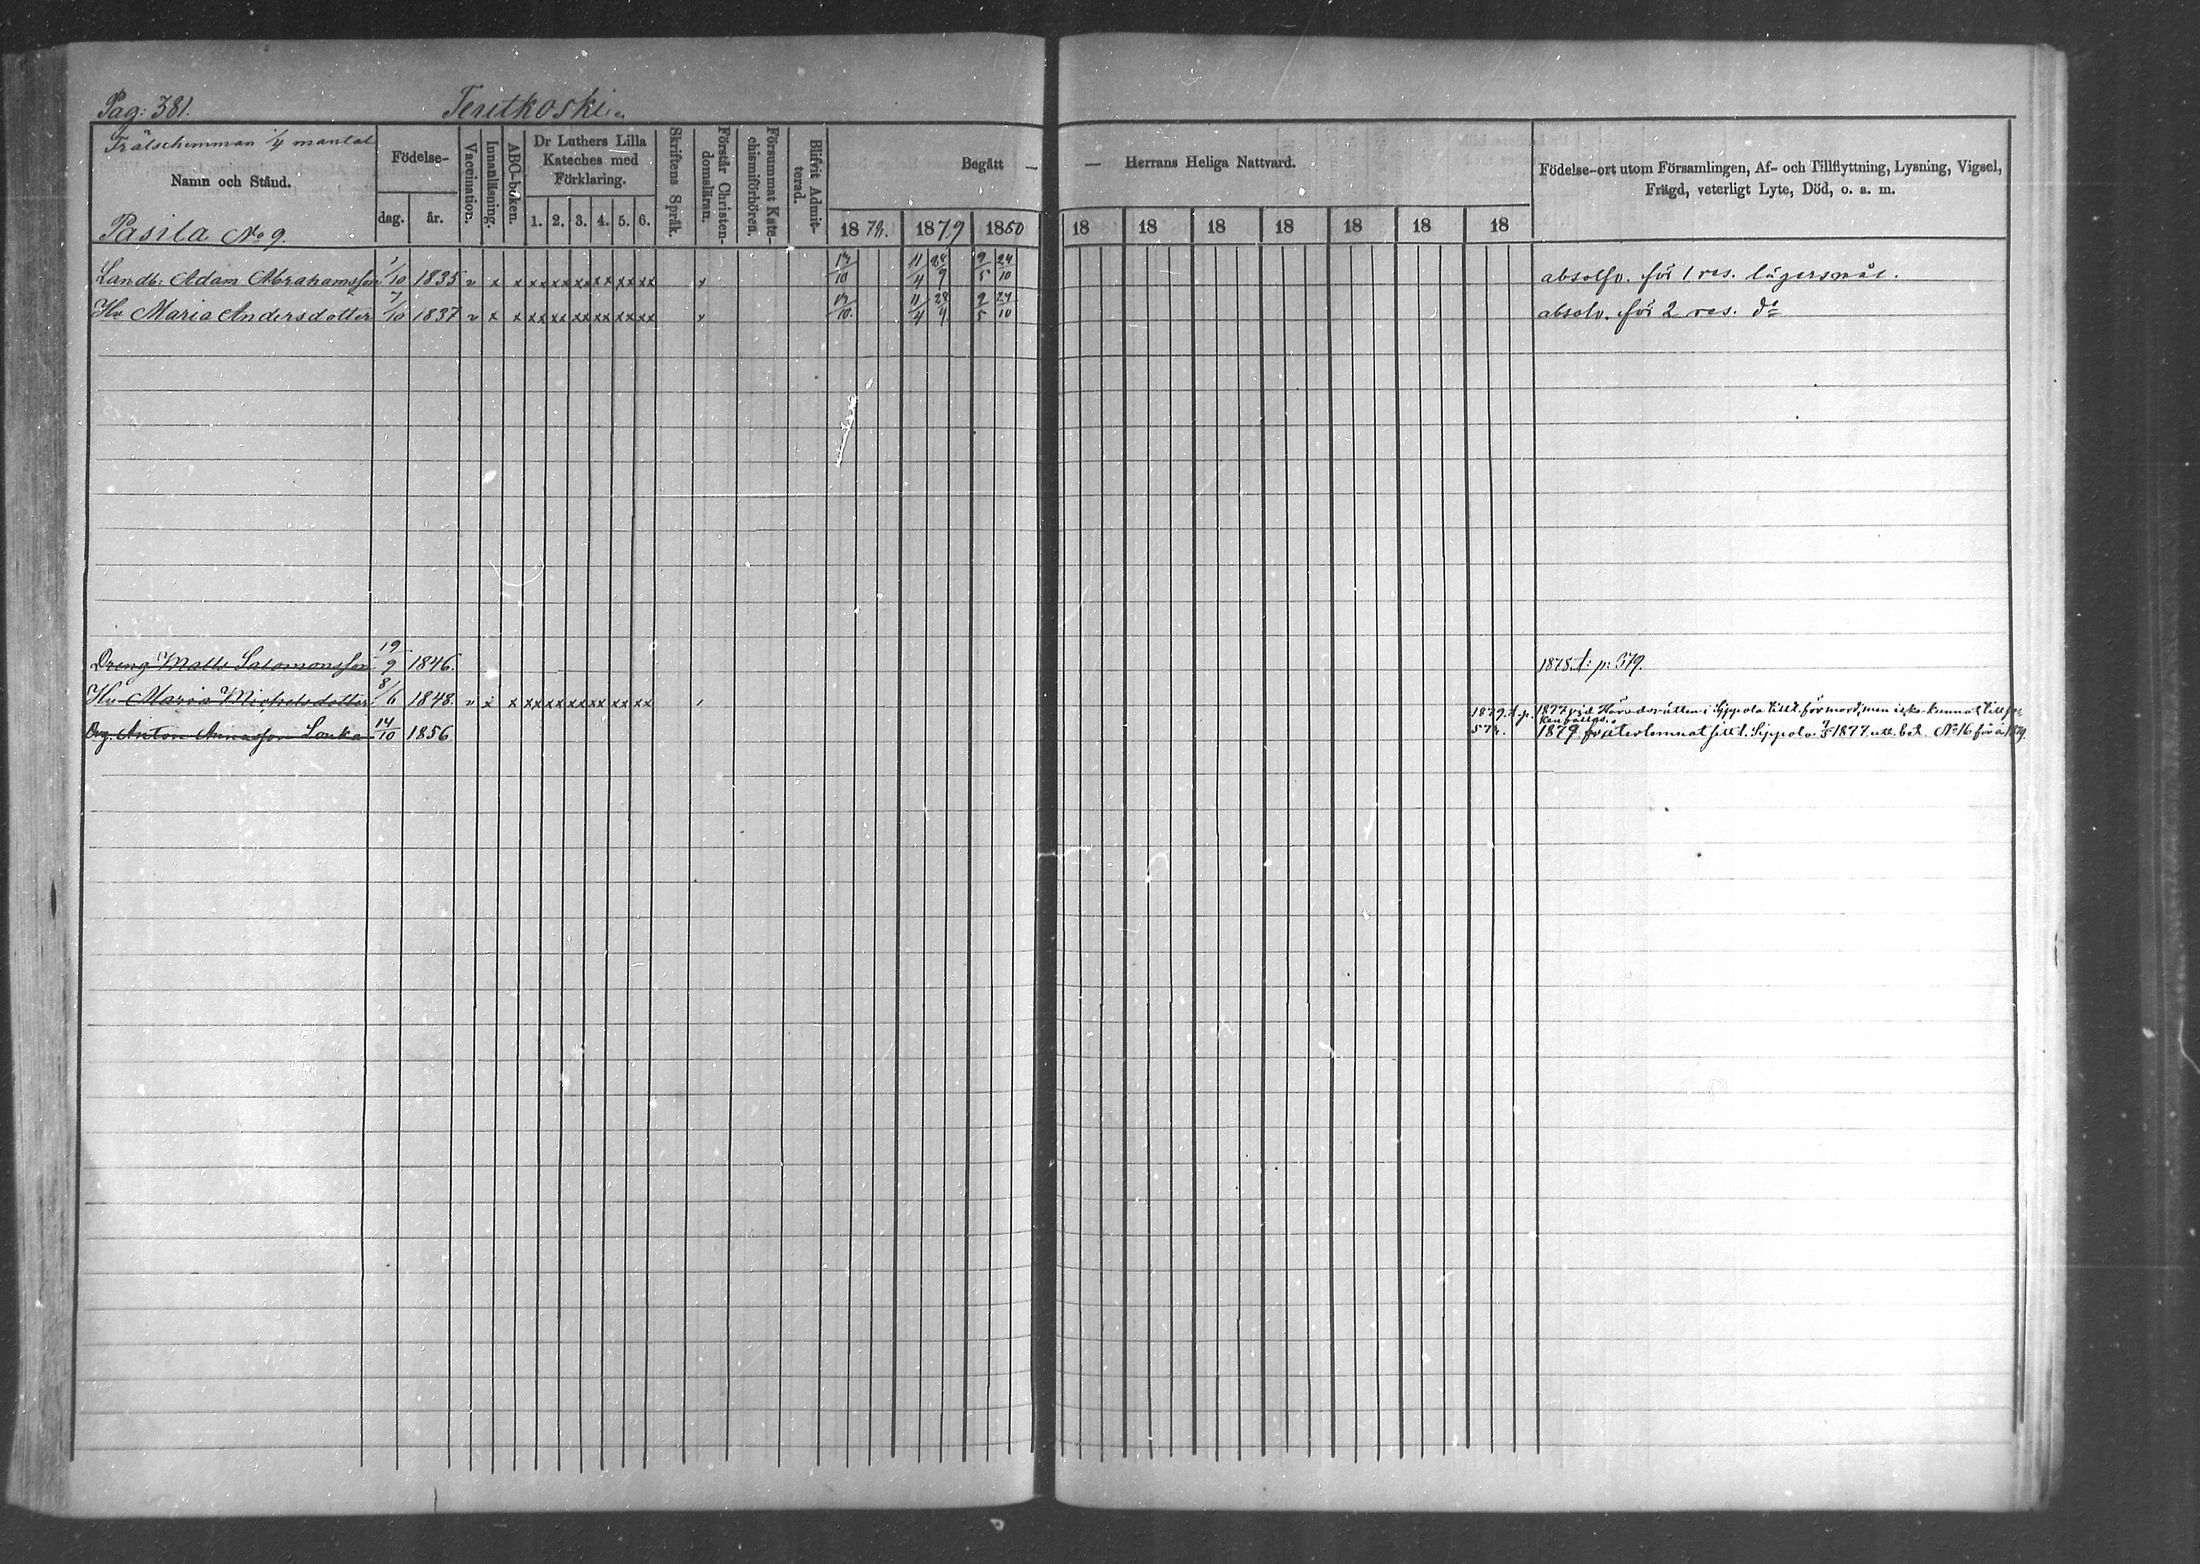 Pag: 381. Teretkoski
Frälsehemman 1/4 mantal
Namn och Stånd.
Pasila No 9.
Födelse-
dag. år.
Vaccination.
Innanläsning.
ABC-boken.
Dr Luthers Lilla
Kateches med
Förklaring.
1. 2. 3. 4. 5. 6.
Skriftens Språk.
Förstår Christen-
domsläran.
Försummat Kate-
chismiförhören.
Blifvit Admit-
terad.
Begått — — Herrans Heliga Nattvard.
1878. 1879 1880 18 18 18 18 18 18 18
Födelse-ort utom Församlingen, Af- och Tillflyttning, Lysning, Vigsel,
Frägd, veterligt Lyte, Död, o. a. m.
Landb: Adam Abrahamsson 1/10 1835 v x x xx xx xx xx xx xx 11/4 28/9 9/5 24/10 absolv. för 1 res. lägersmål.
Hu Maria Andersdotter 7/10 1837 v x x xx xx xx xx xx xx 11/4 28/9 9/5 24/10 absolv. för 2 res. do
Dreng Matts Salomonsson 19/9 1846. 1878. t: p: 379.
Hu Maria Michelsdotter 8/6 1848. v x x xx xx xx xx xx xx
1879. t. p. 1877 vid Häradsrätten i Sippola tillt. för mord, men icke kunnat till
Drg. Anton Annasson Louka 14/10 1856 1879 återlemnat sitt t. Sippola 1877 utt. bet. No 16 för år 1879.